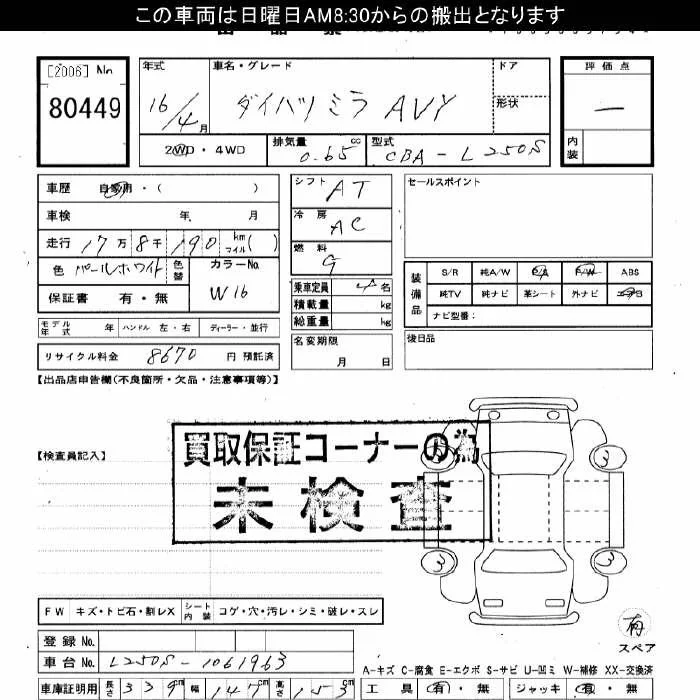 この車両は日曜日AM8:30からの搬出となります
[2006] No
80449
年式 車名・グレード ドア 評価点
16/4月 ダイハツミラ AVY 形状 —
内装
2WD・4WD 排気量 0.65 cc 型式 CBA-L250S
車歴 自家用・( )
車検 年 月
走行 17万8千190 km マイル( )
色 パールホワイト 色替 カラーNo. W16
保証書 有・無
シフト AT
冷房 AC
燃料 G
乗車定員 4名
積載量 kg
総重量 kg
名変期限 月 日
セールスポイント
装備品 S/R 純A/W P/S P/W ABS
純TV 純ナビ 革シート 外ナビ エアB
ナビ型番:
後日品
モデル年式 年 ハンドル 左・右 ディーラー・並行
リサイクル料金 8670 円 預託済
【出品店申告欄(不良箇所・欠品・注意事項等)】
【検査員記入】
買取保証コーナーの為
未検査
3 3
3 3
FW キズ・トビ石・割レX シート内装 コゲ・穴・汚レ・シミ・破レ・スレ
有
スペア
登録 No.
車台 No. L250S-1061963
A-キズ C-腐食 E-エクボ S-サビ U-凹ミ W-補修 XX-交換済
車庫証明用 長さ 339cm 幅 147cm 高さ 153cm 工具 有・無 ジャッキ 有・無